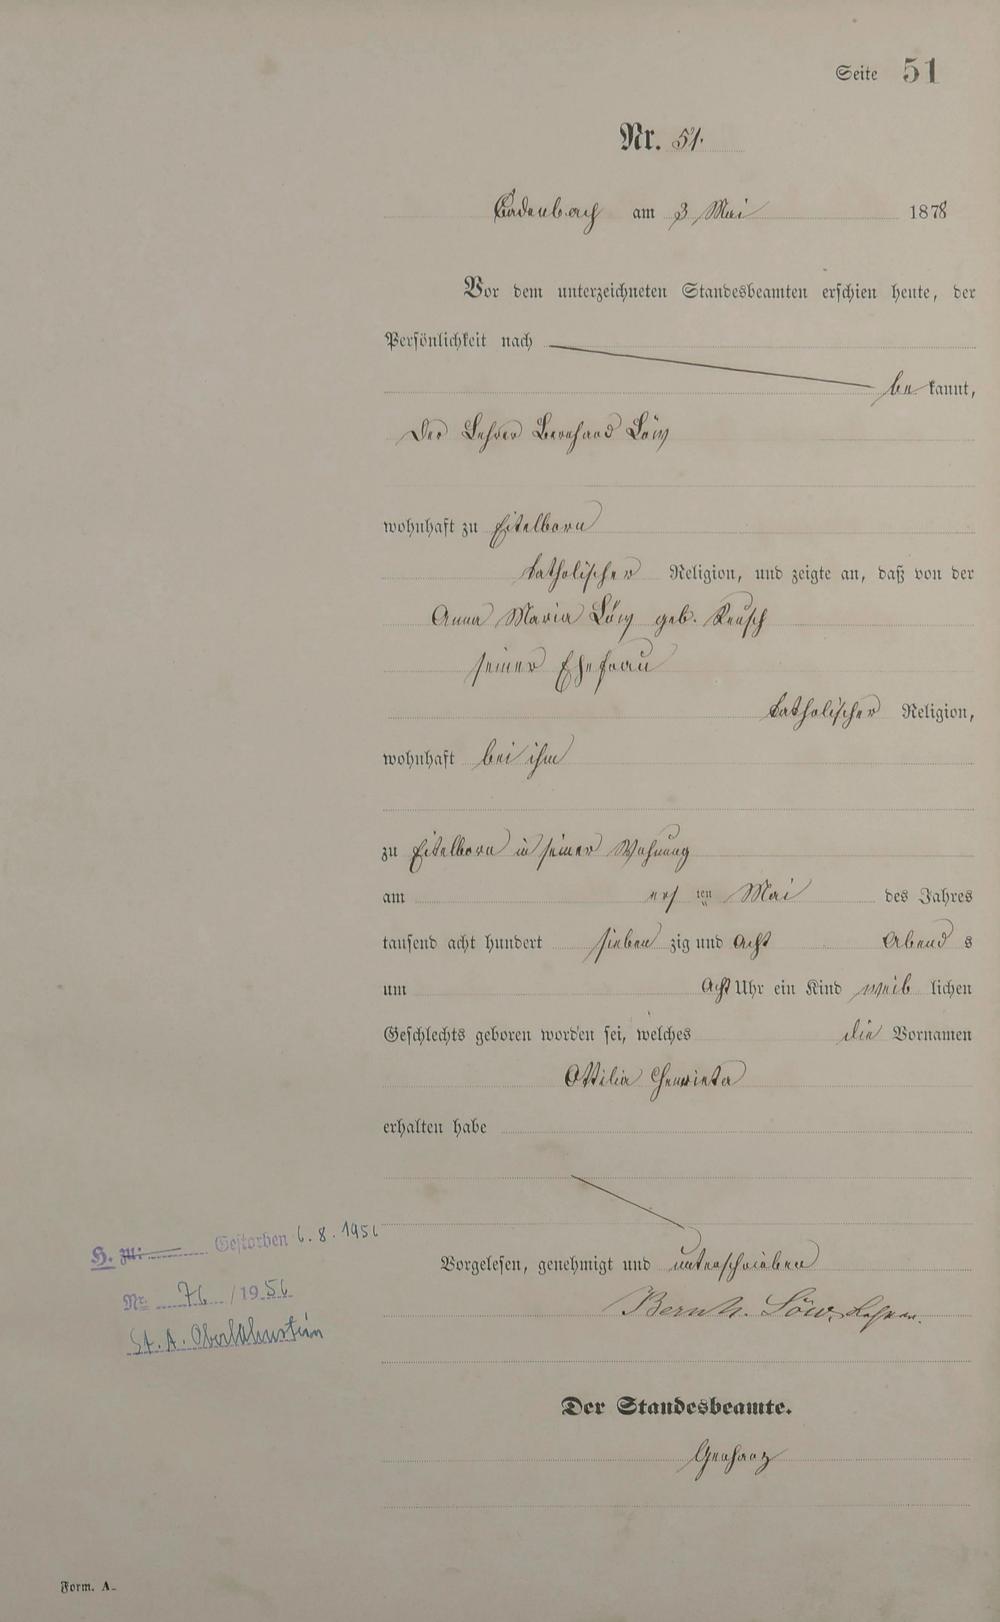 Seite 51
Nr. 51.
Cadenbach am 3 Mai 1878
Vor dem unterzeichneten Standesbeamten erschien heute, der
Persönlichkeit nach
be kannt,
Der Lehrer Bernhard Löw
wohnhaft zu Eitelborn
katholischer Religion, und zeigte an, daß von der
Anna Maria Löw geb. Reusch
seiner Ehefrau
katholischer Religion,
wohnhaft bei ihm
zu Eitelborn in seiner Wohnung
am ers ten Mai des Jahres
tausend acht hundert sieben zig und acht Abend s
um acht Uhr ein Kind weib lichen
Geschlechts geboren worden sei, welches die Vornamen
Ottilia Henrieta
erhalten habe
Vorgelesen, genehmigt und unterschrieben
Bernh. Löw, Lehrer.
Der Standesbeamte.
H. zu: Gestorben 6.8.1956
Nr. 76 / 1956
St. A. Oberlahnstein
Form. A.